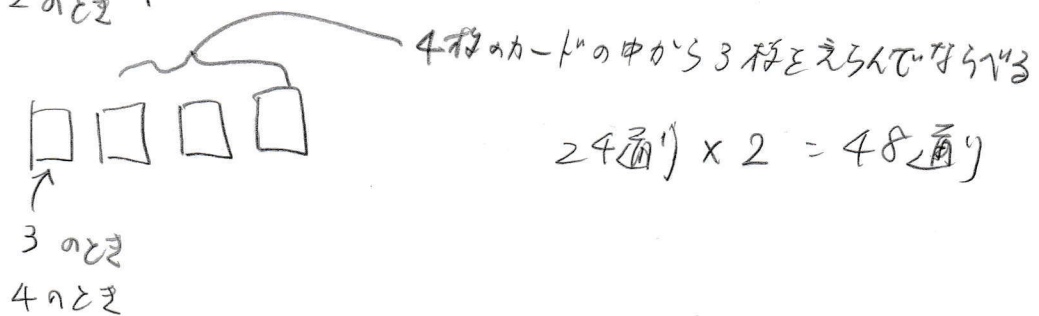 2のとき
4枚のカードの中から3枚をえらんでならべる
24通り × 2 = 48通り
3 のとき
4のとき